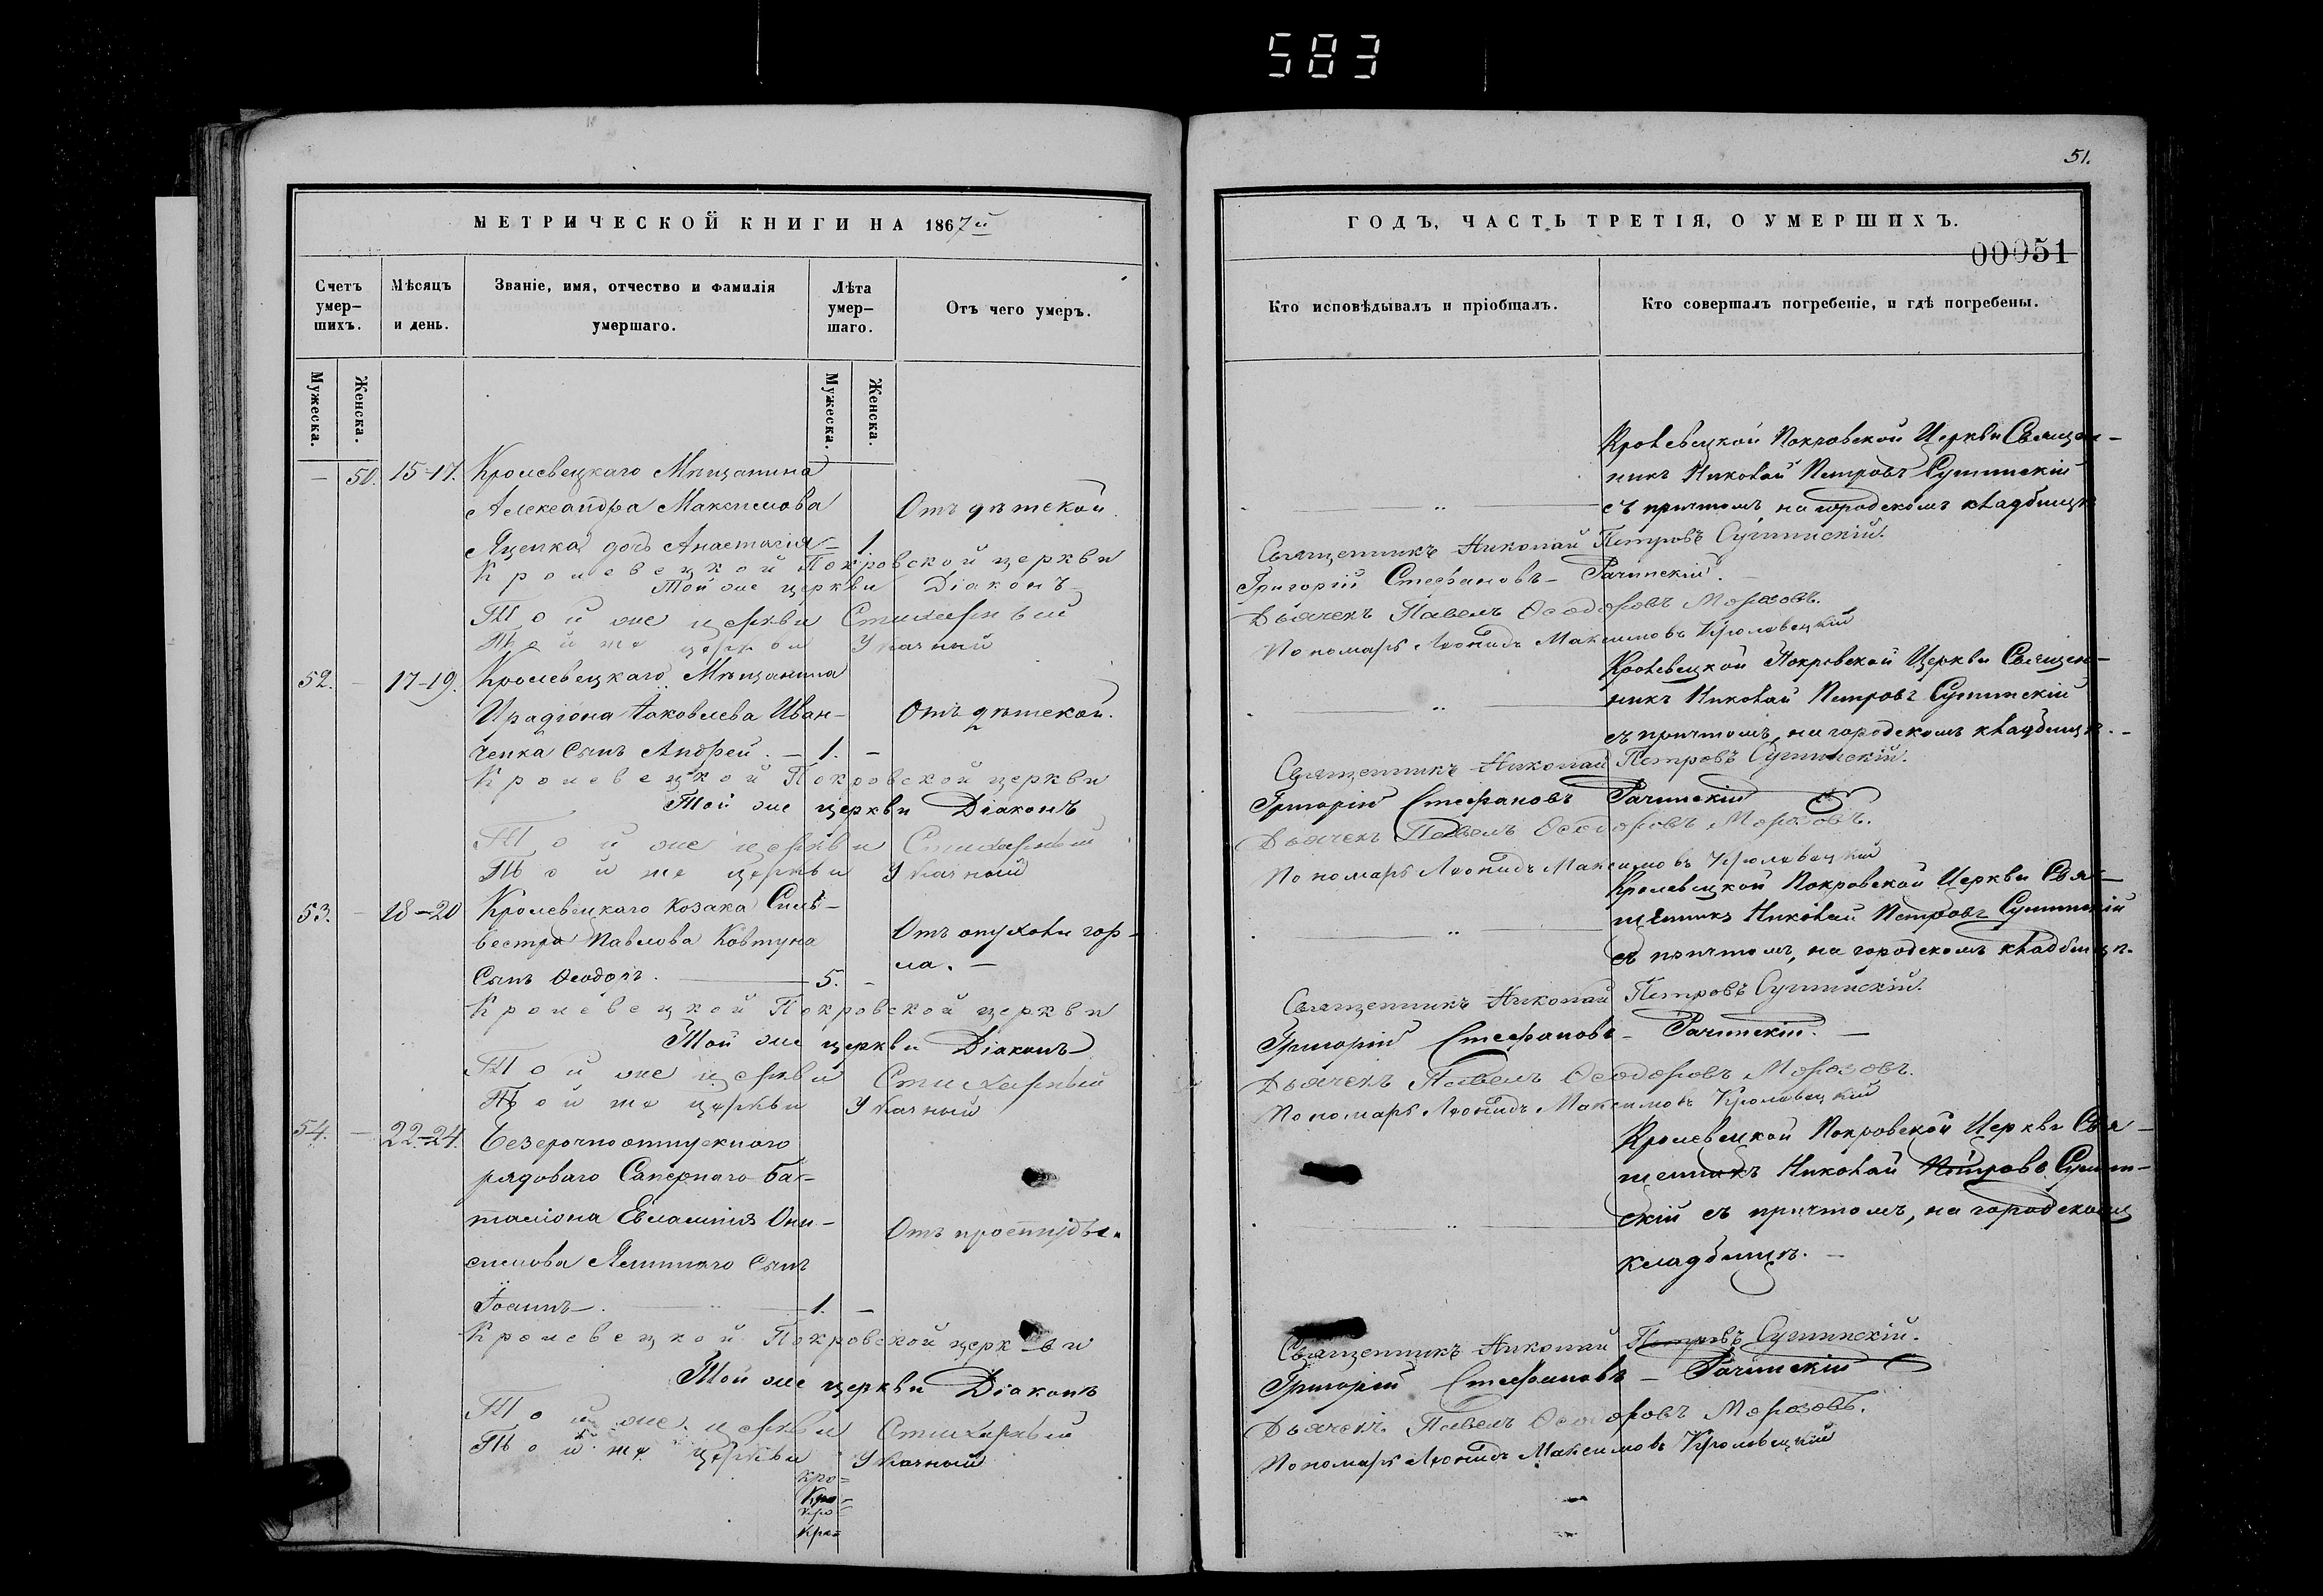 583
51.
МЕТРИЧЕСКОЙ КНИГИ НА 1867й
ГОДЪ, ЧАСТЬ ТРЕТІЯ, О УМЕРШИХЪ.
00051
Счетъ умер-шихъ.
Мѣсяцъ и день.
Званіе, имя, отчество и фамилія умершаго.
Лѣта умер-шаго.
Отъ чего умеръ.
Кто исповѣдывалъ и пріобщалъ.
Кто совершалъ погребеніе, и гдѣ погребены.
Мужеска.
Женска.
Мужеска.
Женска.
— 50. 15-17. Кролевецкаго Мѣщанина
Александра Максимова
Яценка дочь Анастасія — 1.
Отъ дѣтской.
Кролевецкой Покровской Церкви Священ-
никъ Николай Петровъ
съ причтомъ на городскомъ кладбищѣ
Кролевецкой Покровской церкви Священникъ Николай Петровъ
Той же церкви Діаконъ Григорій Стефановъ — Рачинскій.
Той же церкви Стихарный Дьячекъ Павелъ Ѳеодоровъ Морозовъ.
Той же церкви Указный Пономарь Леонидъ Максимовъ Кролевецкій
52. — 17-19. Кролевецкаго Мѣщанина
Ирадіона Іаковлева Иван-
ченка Сынъ Андрей. — 1. —
Отъ дѣтской.
Кролевецкой Покровской Церкви Священ-
никъ Николай Петровъ
съ причтомъ, на городскомъ кладбищѣ. —
Кролевецкой Покровской церкви Священникъ Николай Петровъ
Той же церкви Діаконъ Григорій Стефановъ Рачинскій
Той же церкви Стихарный Дьячекъ Павелъ Ѳеодоровъ Морозовъ.
Той же церкви Указный Пономарь Леонидъ Максимовъ Кролевецкій
53. — 18-20 Кролевецкаго Козака Силь-
вестра Павлова Ковтуна
Сынъ Ѳеодоръ. — 5. —
Отъ опухоли гор-
ла. —
Кролевецкой Покровской Церкви Свя-
щенникъ Николай Петровъ
съ причтомъ, на городскомъ кладбищѣ.
Кролевецкой Покровской церкви Священникъ Николай Петровъ
Той же церкви Діаконъ Григорій Стефановъ — Рачинскій. —
Той же церкви Стихарный Дьячекъ Павелъ Ѳеодоровъ Морозовъ.
Той же церкви Указный Пономарь Леонидъ Максимовъ Кролевецкій
54. — 22-24. Безсрочноотпускнаго
рядоваго Сапернаго Ба-
таліона Евлампія Они-
симова Сынъ
Іоаннъ — . — 1. —
Отъ простуды.
Кролевецкой Покровской Церкви Свя-
щенникъ Николай Петровъ
скій съ причтомъ, на городскомъ
кладбищѣ. —
Кролевецкой Покровской церкви Священникъ Николай Петровъ
Той же церкви Діаконъ Григорій Стефановъ — Рачинскій
Той же церкви Стихарный Дьячекъ Павелъ Ѳеодоровъ Морозовъ.
Той же церкви Указный Пономарь Леонидъ Максимовъ Кролевецкій
Кро=
Кро=
Кро=
Кро=